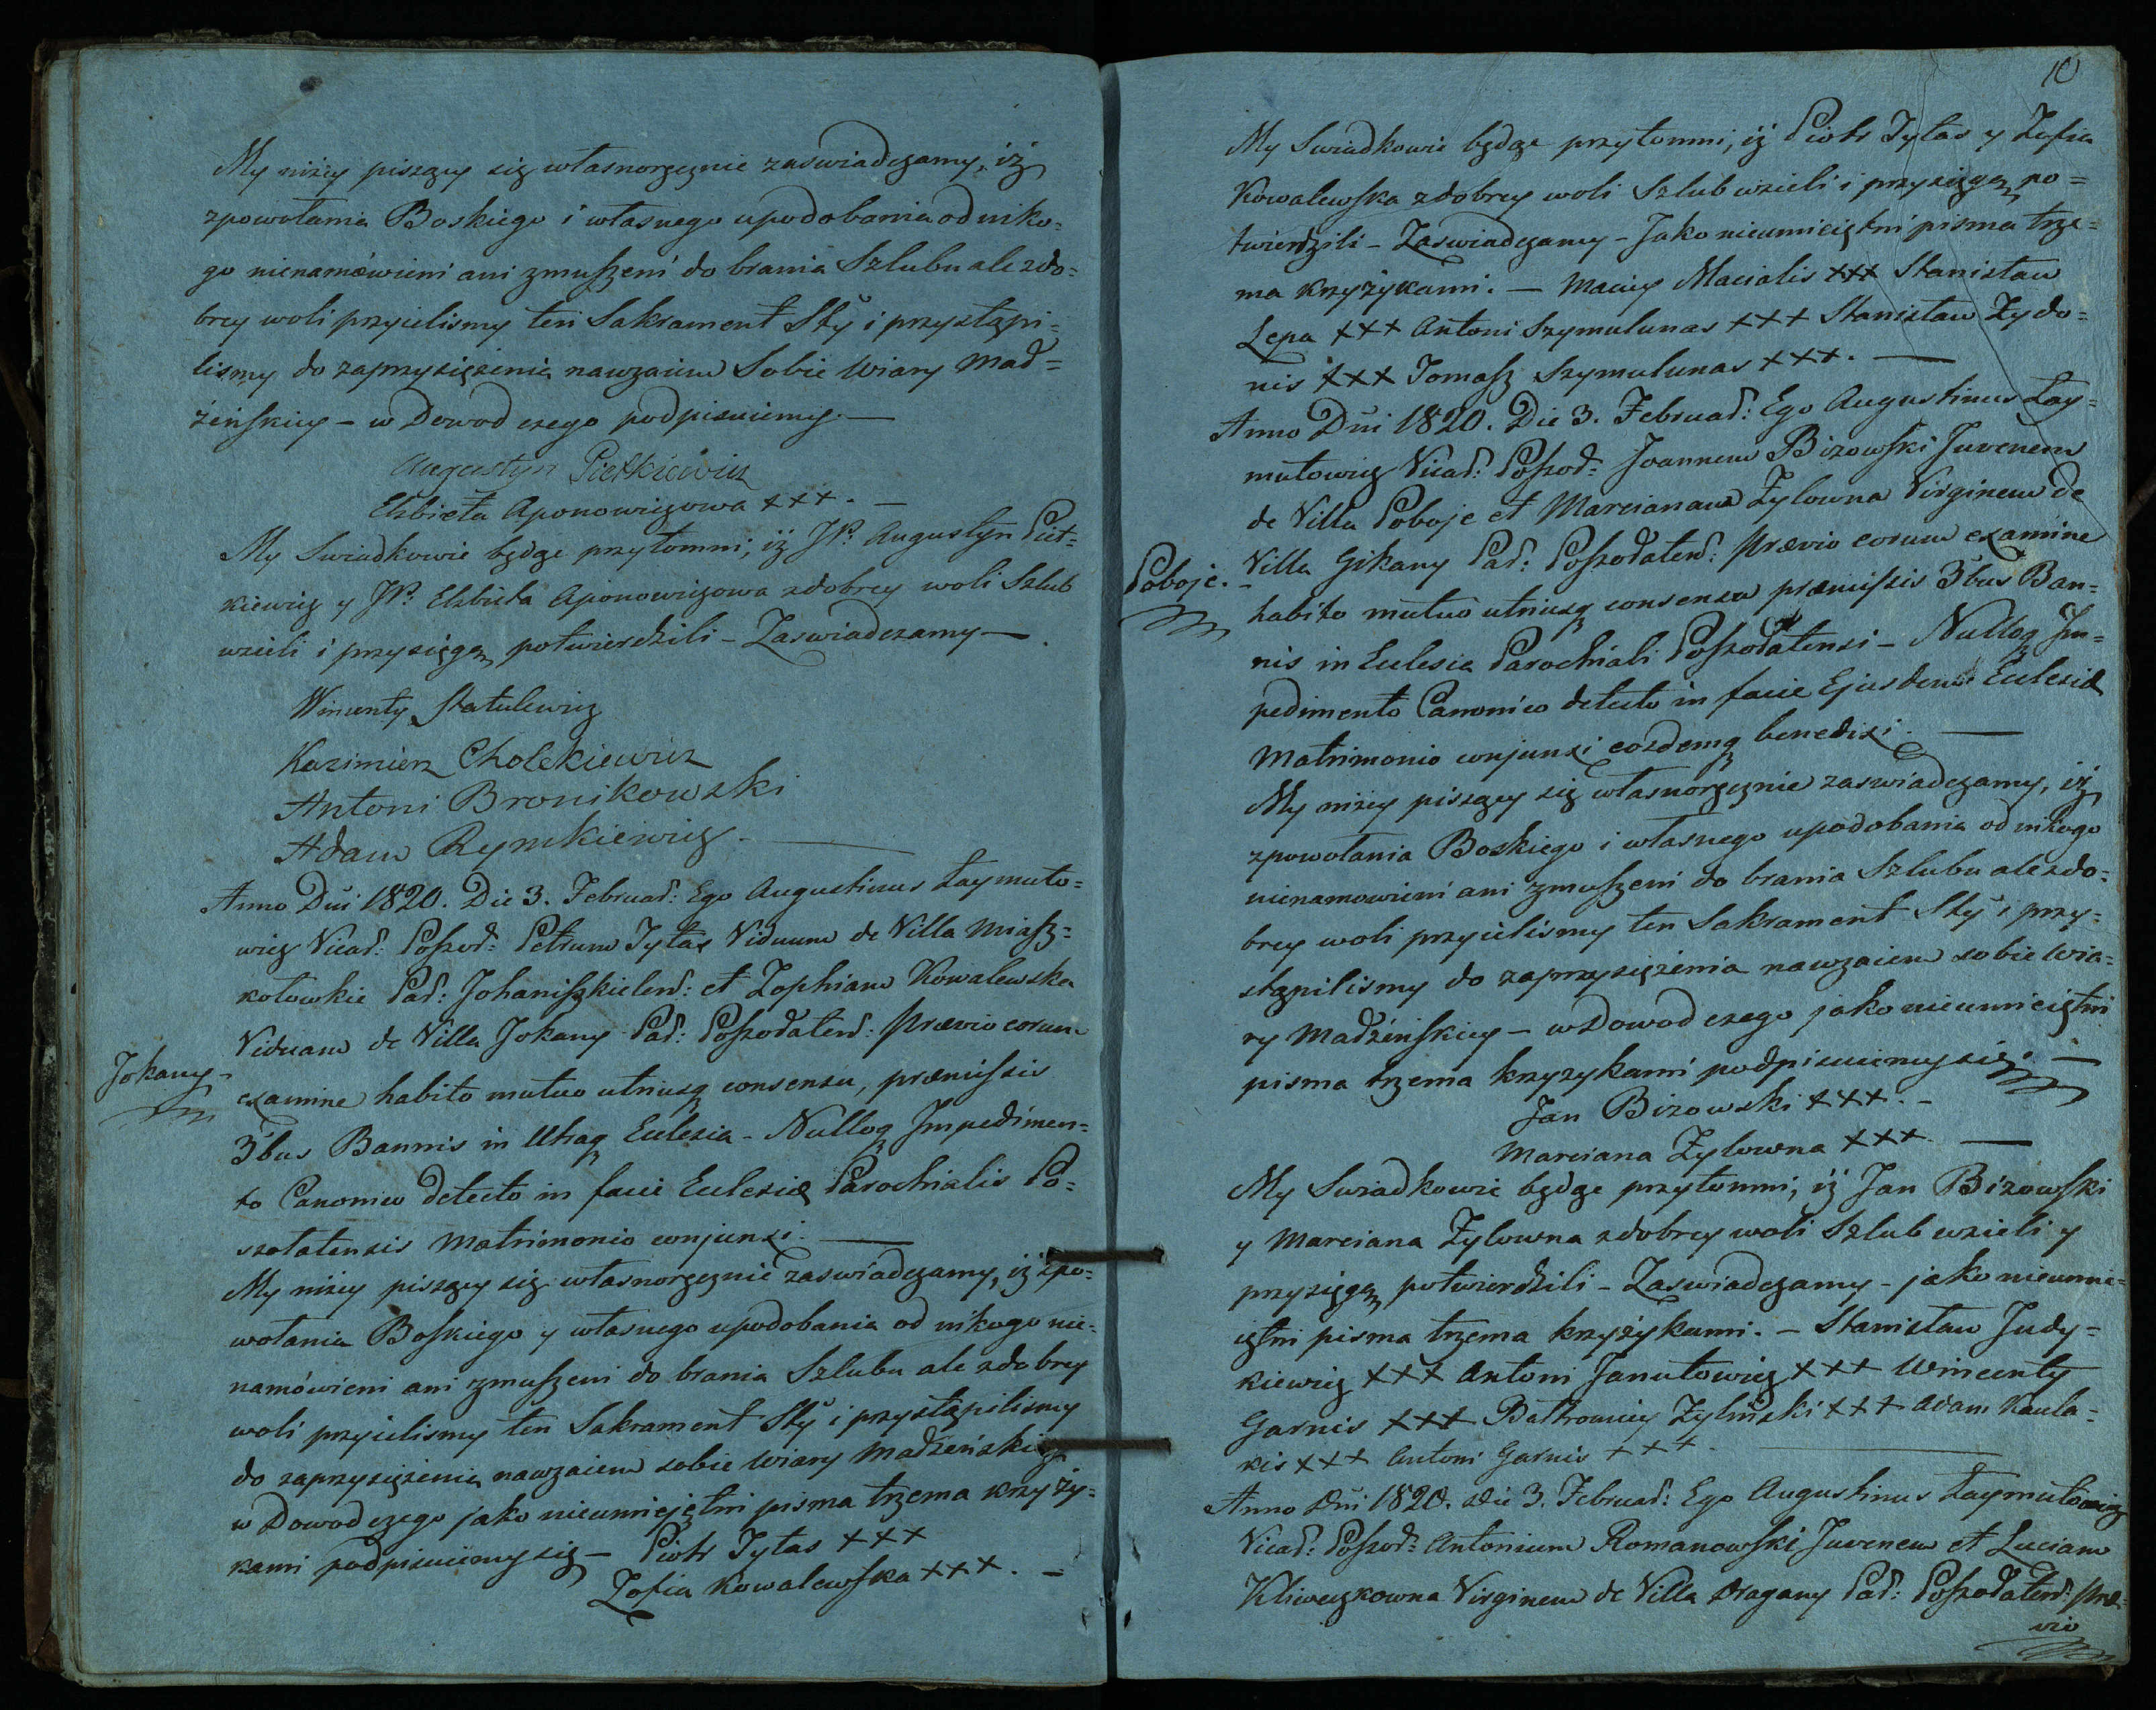 My niżey piszący się własnoręcznie zaswiadczamy, iż
zpowołania Boskiego i własnego upodobania od niko=
go nienamówieni ani zmuszeni do brania Szlubu ale zdo=
brey woli przyielismy ten Sakrament Sty i przystąpi=
lismy do zaprzysiężenia nawzaiem Sobie Wiary Mał=
żeńskiey – w Dowod czego podpisuiemy. —
Augustyn Pietkiewicz
Elzbieta Aponowiczowa +++. —
My Swiadkowie będąc przytomni, iż JP: Augustyn Piet=
kiewicz y JP: Elzbieta Aponowiczowa zdobrey woli Szlub
wzieli i przysięgą potwierdzili – Zaswiadczamy —
Wincenty Statulewicz
Kazimierz Cholekiewicz
Antoni Bronikowski
Adam Rymkiewicz. —
Anno Dni 1820. Die 3. Februar: Ego Augustinus Łaymuto=
wicz Vicar: Poszod: Petrum Tytas Viduum de Villa Miasz=
kotowkie Par: Johaniszkielen: et Zophiam Kowalewska
Viduam de Villa Jokany Par: Poszodaten: Prævio eorum
Jokany
examine habito mutuo utriusq consensu, præmissis
3bus Bannis in Utraq Eclesia – Nulloq Impedimen=
to Canonico detecto in facie Eclesiæ Parochialis Po=
szolatensis Matrimonio conjunxi. —
My niżey piszący się własnoręcznie zaswiadczamy, iż zpo=
wołania Boskiego y własnego upodobania od nikogo nie=
namówieni ani zmuszeni do brania Szlubu ale zdobrey
woli przyielismy ten Sakrament Sty i przystąpilismy
do zaprzysiężenia nawzaiem sobie Wiary Małżeńskiey
w Dowod czego jako nieumiejętni pisma trzema krzyży=
kami podpisuiemy się – Piotr Tytas +++
Zofia Kowalewska +++. —
10
My Swiadkowie będąc przytomni, iż Piotr Tytas y Zofia
Kowalewska zdobrey woli Szlub wzieli i przysięgą po=
twierdzili – Zaswiadczamy – Jako nieumieiętni pisma trze=
ma krzyżykami. — Maciey Macialis +++ Stanisław
Lepa +++ Antoni Szymulunas +++ Stanisław Zydo=
nis +++ Tomasz Szymulunas +++. —
Anno Dni 1820. Die 3. Februar: Ego Augustinus Łay=
mutowicz Vicar: Poszod: Joannem Bizowski Juvenem
de Villa Poboje et Marcianam Zylowna Virginem de
Poboje.
Villa Gikany Par: Poszodaten: Prævio eorum examine
habito mutuo utriusq consensu præmissis 3bus Ban=
nis in Eclesia Parochiali Poszodatensi – Nulloq Im=
pedimento Canonico detecto in facie Ejusdem Eclesiæ
Matrimonio conjunxi eosdemq benedixi. —
My niżey piszący się własnoręcznie zaswiadczamy, iż
zpowołania Boskiego i własnego upodobania od nikogo
nienamowieni ani zmuszeni do brania Szlubu ale zdo=
brey woli przyielismy ten Sakrament Sty i przy=
stąpilismy do zaprzysiężenia nawzaiem sobie Wia=
ry Małżeńskiey – w Dowod czego jako nieumieiętni
pisma trzema krzyzykami podpisuiemy się. —
Jan Bizowski +++. —
Marciana Zylowna +++. —
My Swiadkowie będąc przytomni, iż Jan Bizowski
y Marciana Zylowna zdobrey woli Szlub wzieli y
przysięgą potwierdzili – Zaswiadczamy – jako nieumie=
iętni pisma trzema krzyżykami. – Stanisław Judy=
kiewicz +++ Antoni Janutowicz +++ Wincenty
Garnis +++ Bałtromiey Zyliński +++ Adam Kaula=
kis +++ Antoni Garnis +++. —
Anno Dni 1820. Die 3. Februar: Ego Augustinus Łaymutowicz
Vicar: Poszod: Antonium Romanowski Juvenem et Luciam
Kliweczkowna Virginem de Villa Dragany Par: Poszodaten: Præ=
vio